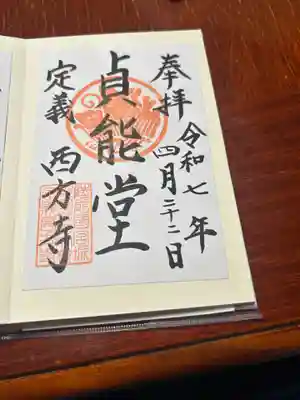 奉拝
令和七年
四月二十二日
貞能堂
定義 西方寺